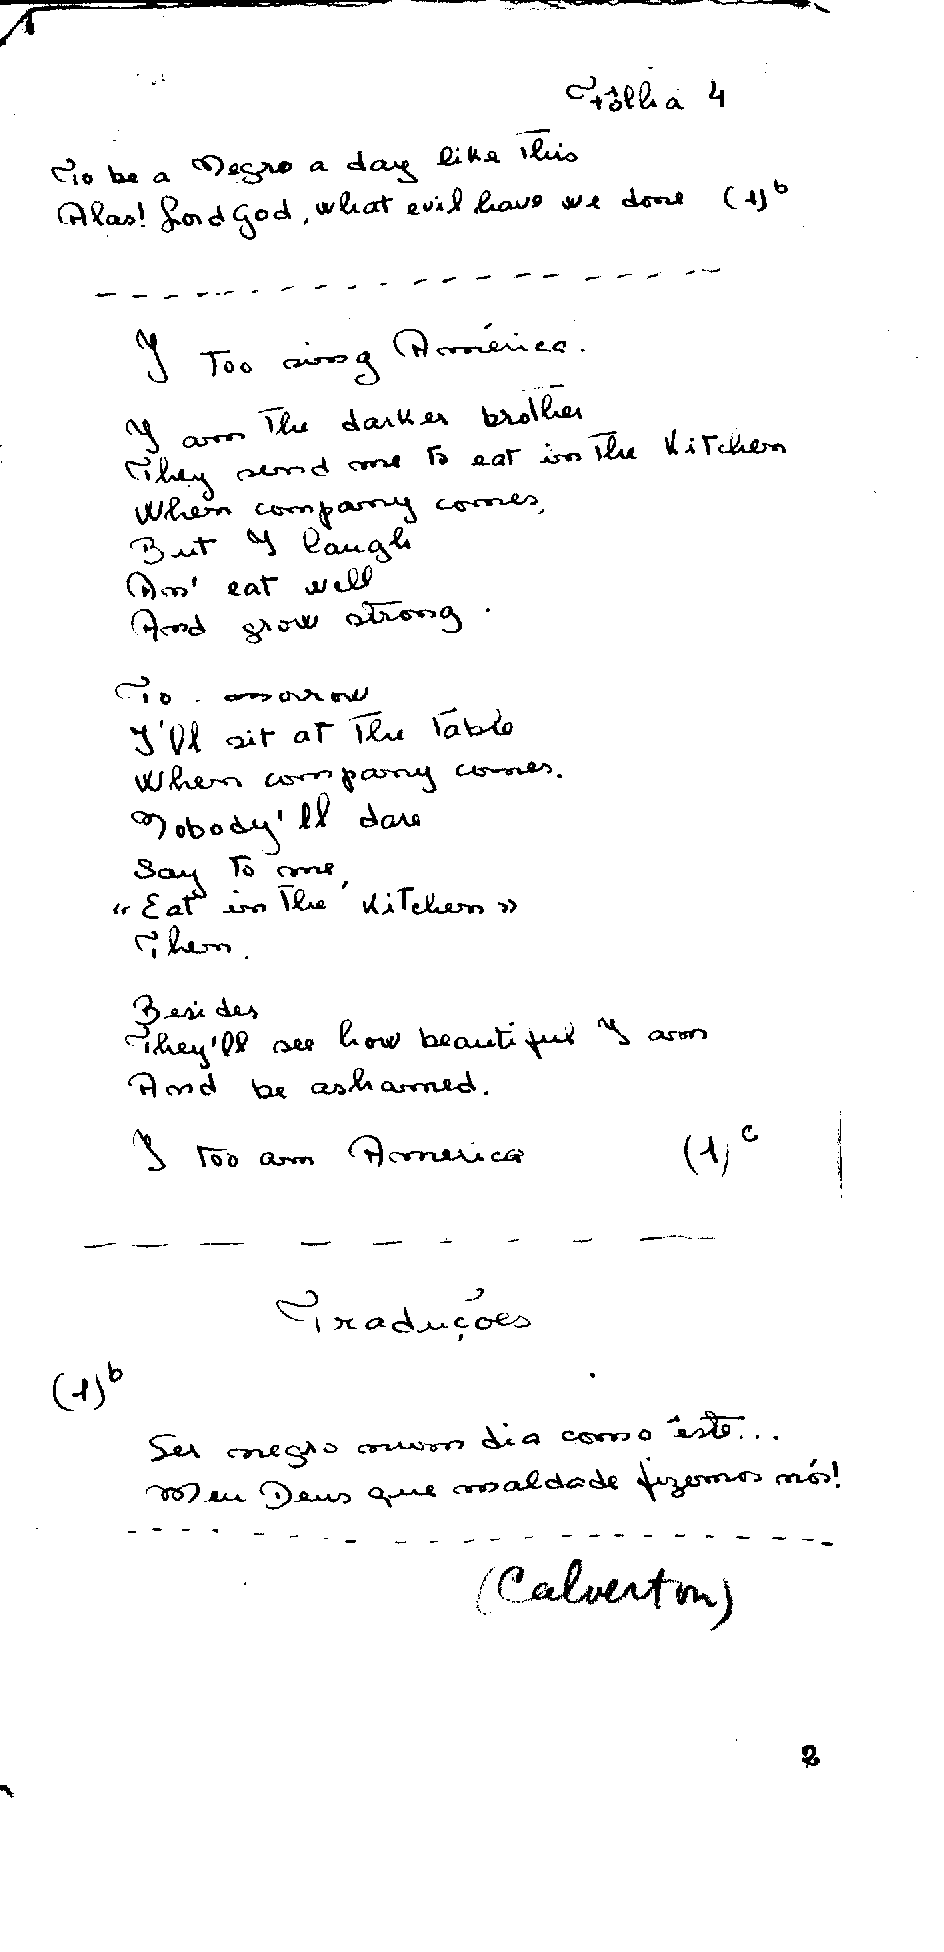 Fôlha 4
To be a Negro a day like this
Alas! Lord God, what evil have we done (1)b
I too sing América.
I am the darker brother
They send me to eat in the kitchen
When company comes,
But I laugh
An' eat well
And grow strong.
To-morrow
I'll sit at the table
When company comes.
Nobody'll dare
Say to me,
"Eat in the kitchen"
Then.
Besides
They'll see how beautiful I am
And be ashamed.
I too am America (1)c
Traduções
(1)b
Ser negro num dia como êste...
Meu Deus que maldade fizemos nós!
(Calverton)
2